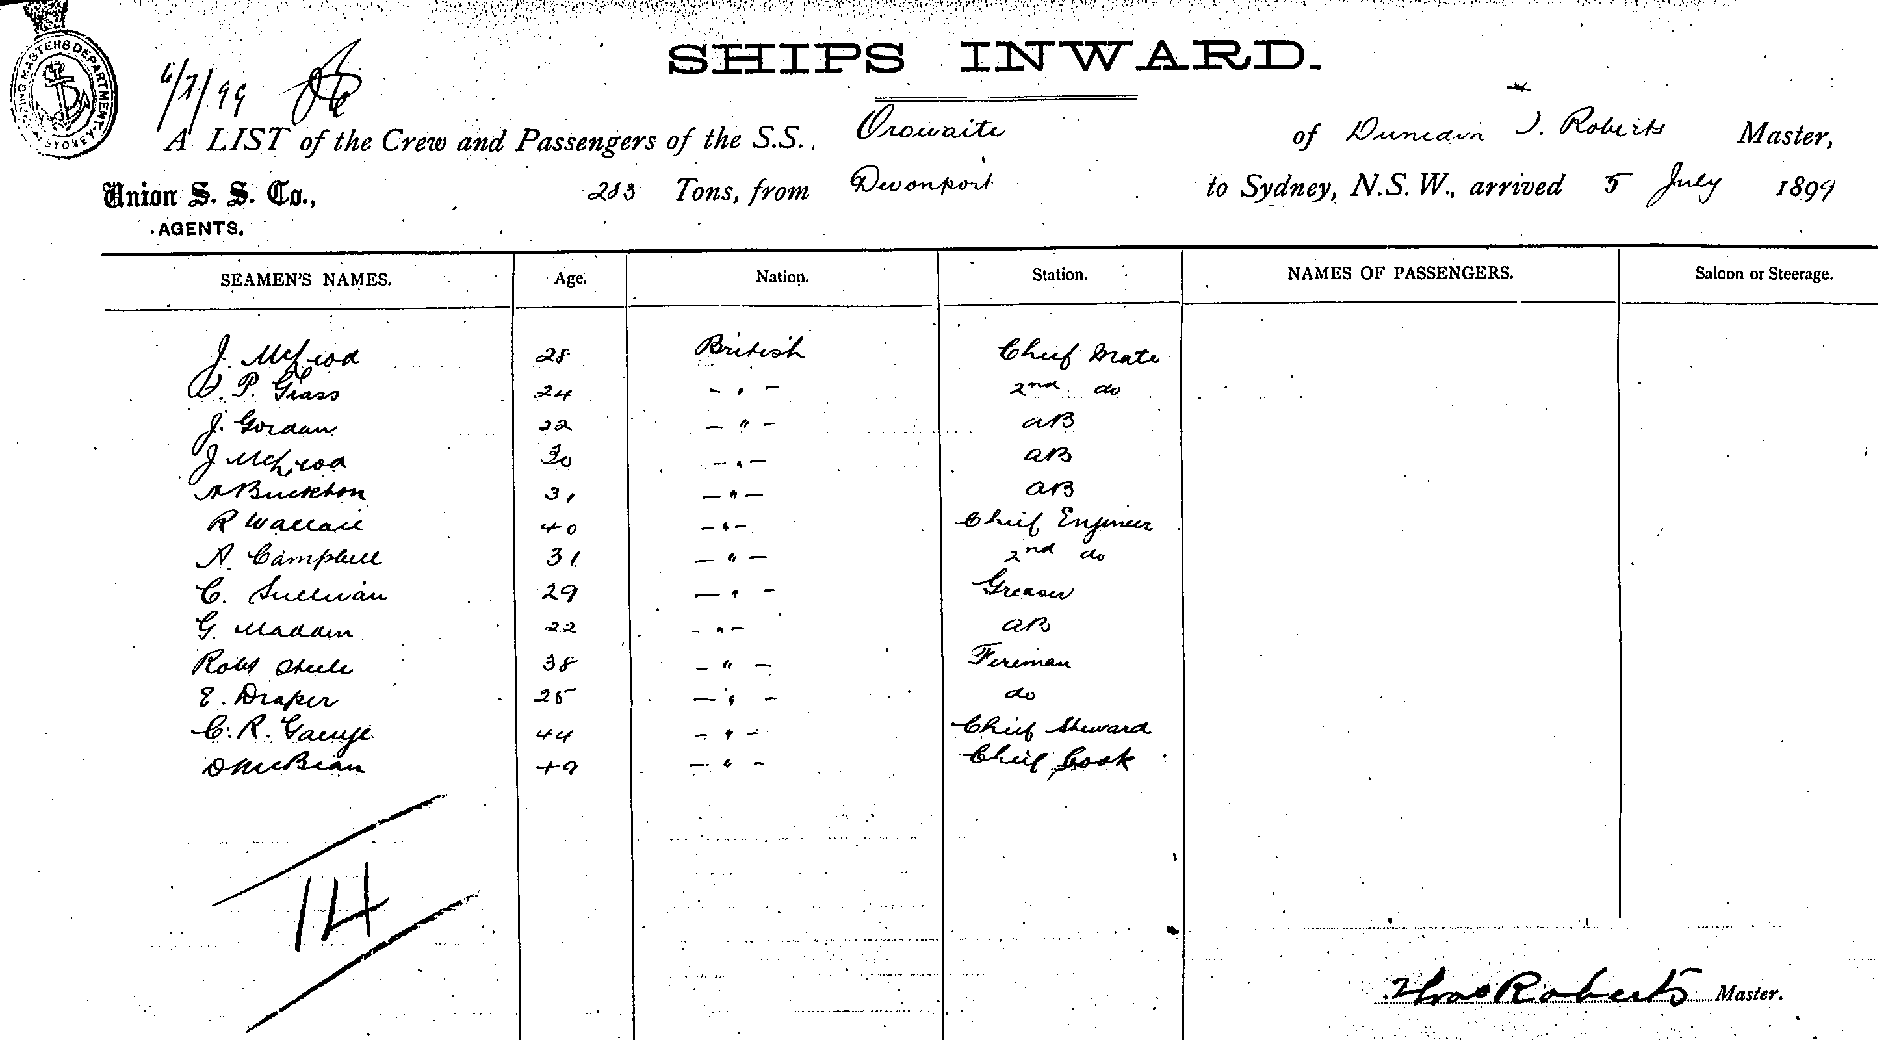 SHIPS INWARD.
6/7/99
A LIST of the Crew and Passengers of the S.S. Orowaiti of Dunedin T. Roberts Master,
Union S. S. Co., 283 Tons, from Devonport to Sydney, N.S.W., arrived 5 July 1899
AGENTS.
SEAMEN'S NAMES. Age. Nation. Station. NAMES OF PASSENGERS. Saloon or Steerage.
J. McLeod 28 British Chief Mate
P. Grass 24 - " - 2nd do
J. Gordan 22 - " - AB
J McLeod 30 - " - AB
A Buckhon 31 - " - AB
R Wallace 40 - " - Chief Engineer
A. Campbell 31 - " - 2nd do
C. Sullivan 29 - " - Greaser
G. Madden 22 - " - AB
Robt Steele 38 - " - Fireman
E. Draper 25 - " - do
C. R. 44 - " - Chief Steward
D McBean 49 - " - Chief Cook
14
Thos Roberts Master.